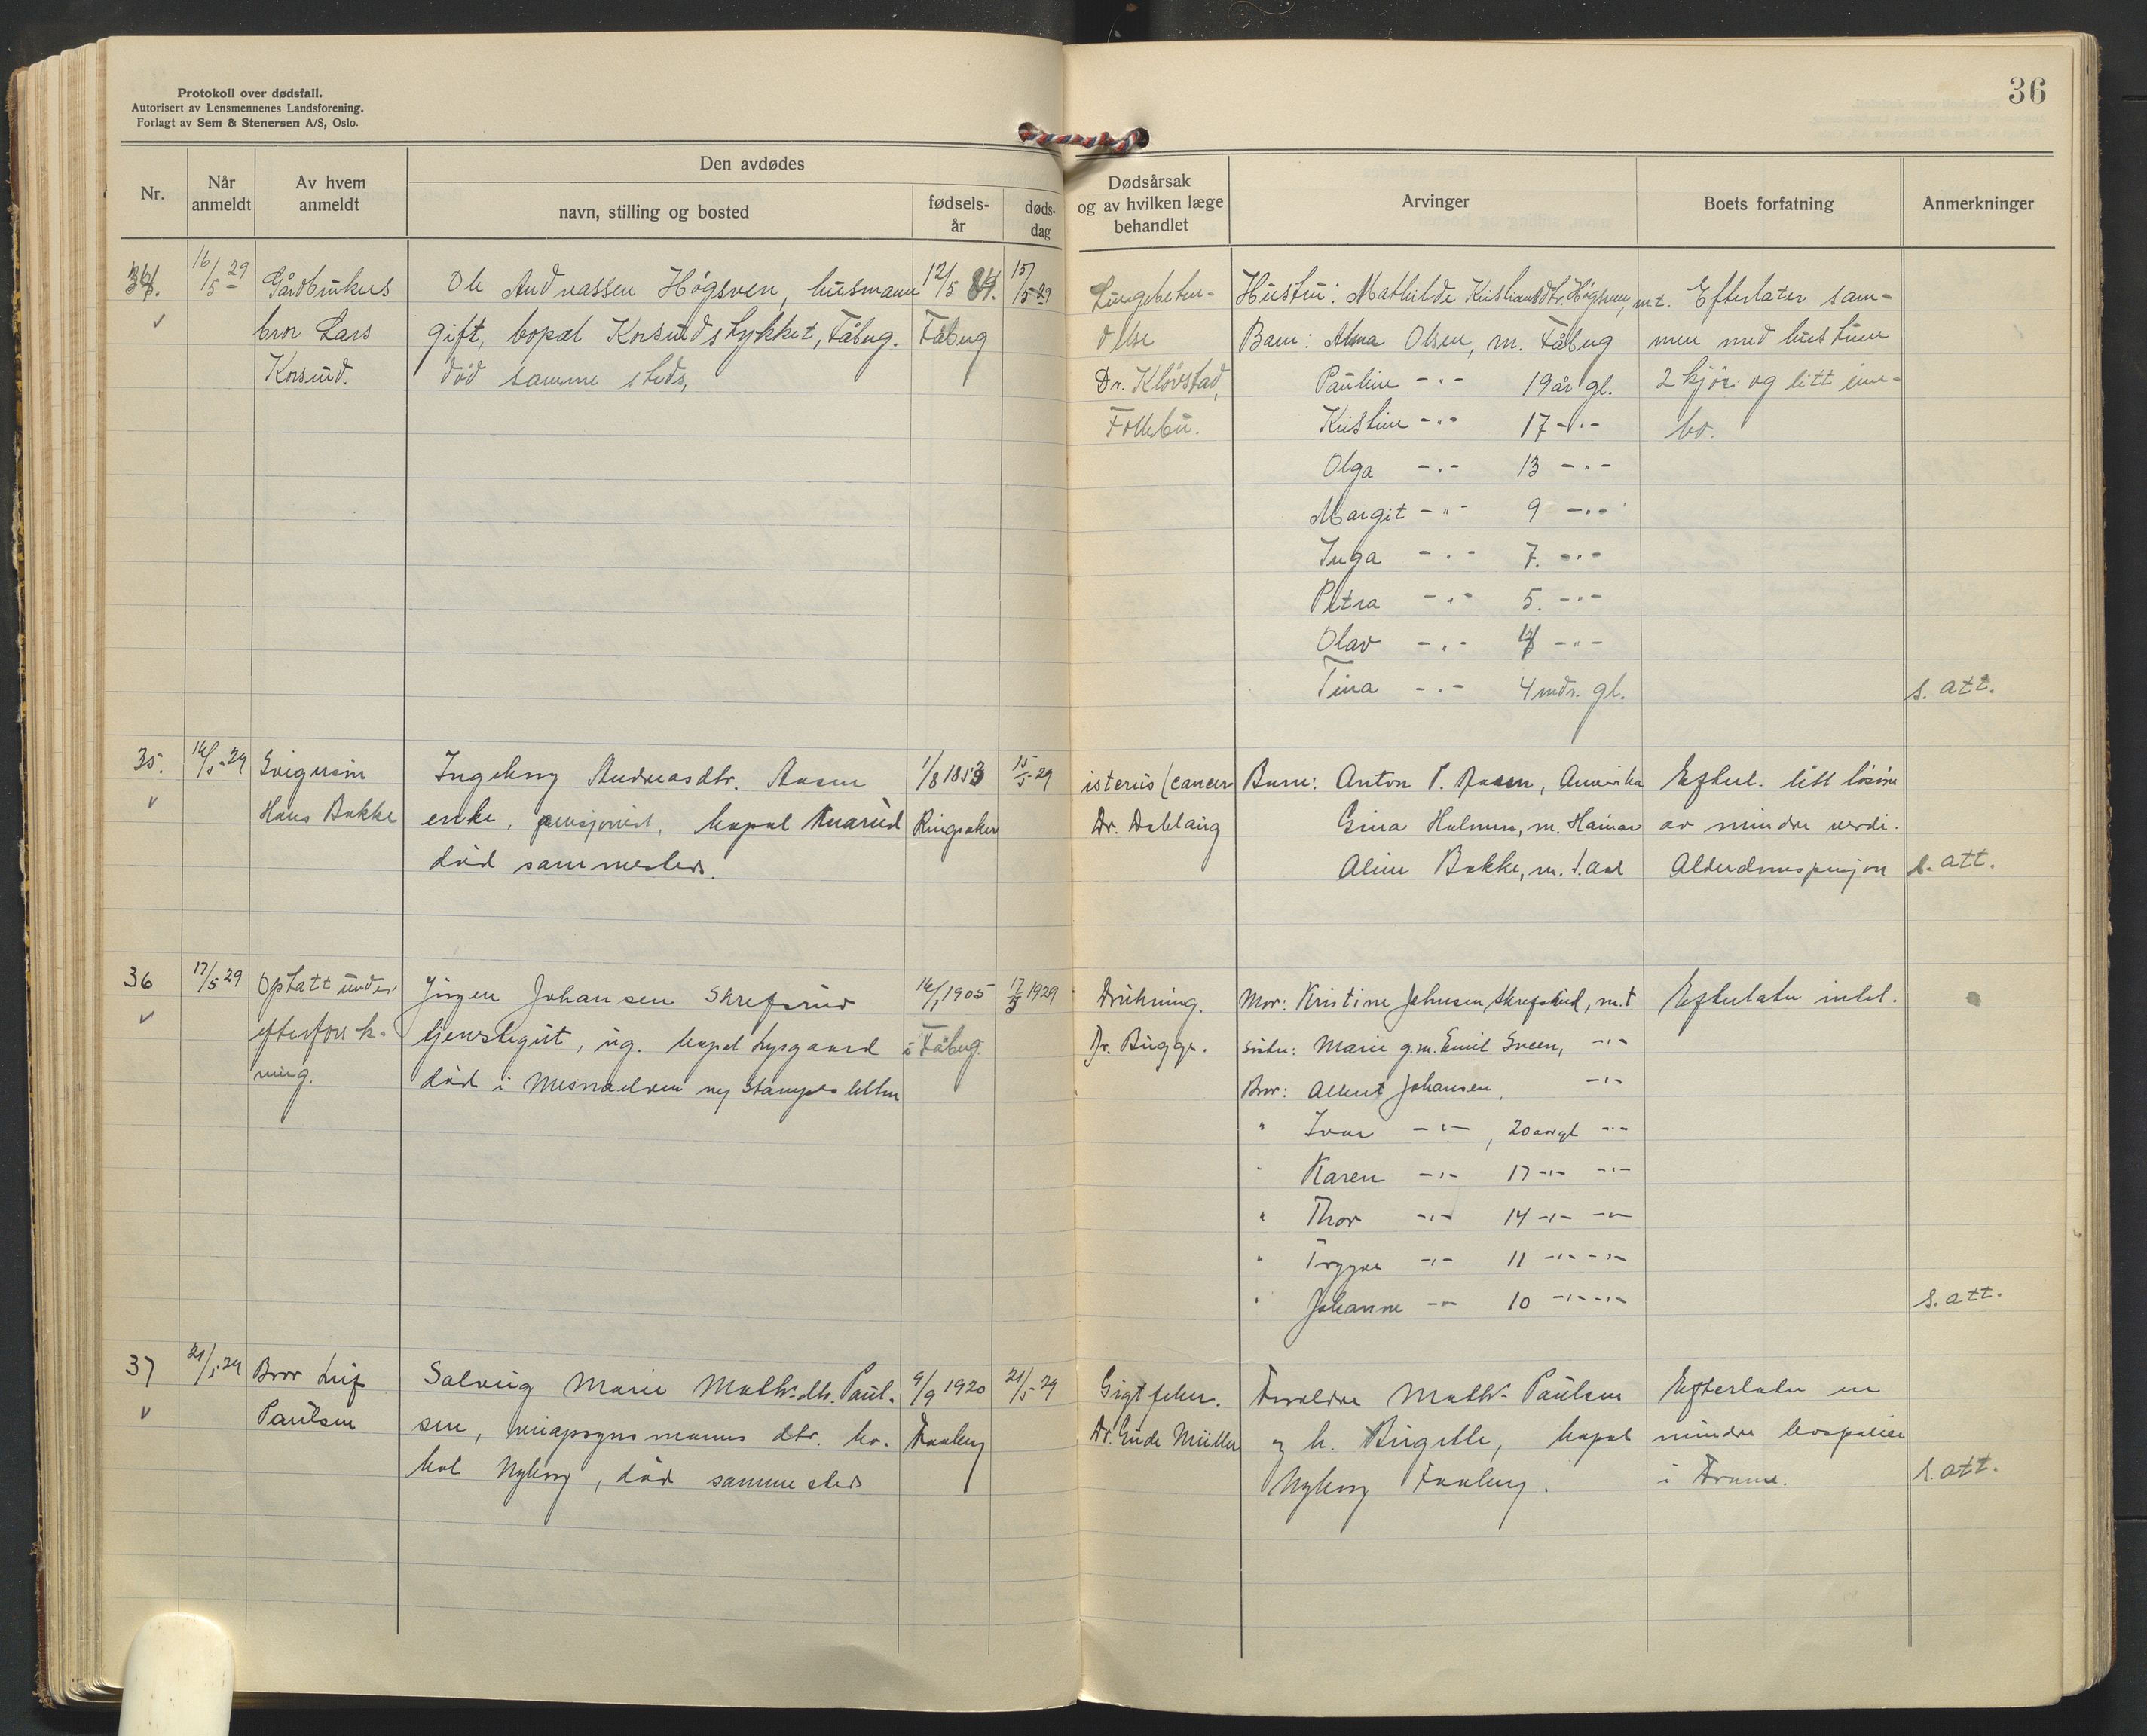 Protokoll over dødsfall.
Autorisert av Lensmennenes Landsforening.
Forlagt av Sem & Stenersen A/S, Oslo.
36
Nr.
Når anmeldt
Av hvem anmeldt
Den avdødes
navn, stilling og bosted
fødsels-år
døds-dag
Dødsårsak og av hvilken læge behandlet
Arvinger
Boets forfatning
Anmerkninger
34. 16/5-29 Gårdbrukers Ole Andreassen Høgsveen, husmann 12/5 84. 15/5-29 Lungebeten- Hustru: Mathilde Kristiansdtr. Høgsveen, m.t. Efterlater sam-
v bror Lars gift, bopæl Korsudstykket, Fåberg. Fåberg delse Barn: Alma Olsen, m. Fåberg men med hustruen
Korsud. død samme steds, Dr. Kløvstad, Pauline -"- 19 år gl. 2 kjør og litt inn-
Follebu. Kristine -"- 17 -"- bo.
Olga -"- 13 -"-
Margit -"- 9 -"-
Inga -"- 7. -"-
Petra -"- 5. -"-
Olav -"- -"-
Tina -"- 4 mdr. gl. s. att.
35. 16/5-29 Svigersøn Ingeborg Andreasdtr. Aasen 1/8 1853 15/5-29 isterus (cancer Barn: Anton P. Aasen, Amerika Efterl. litt løsøre
v Hans Bakke enke, pensjonist, bopæl Ringsaker Dr. Gina Holmen, m. Hamar av mindre verdi.
død sammesteds. Aline Bakke, m. Alderdomspensjon s. att.
36 17/5 29 Optatt under Jørgen Johansen Skrefsrud 16/1 1905 17/5 1929 Drukning. Mor: Kristine Johnsen Skrefsrud, m.t Efterlater intet.
v efterforsk- tjenstegut, ug. bopæl Lysgaard i Fåberg. Dr. Bugge. Søster: Marie g.m. Emil Sveen, -"-
ning. død i Mesnaelven ved Stampesletten Bror: Albert Johansen, -"-
" Ivar -"-, 20 aar gl -"-
" Karen -"- 17 -"- -"-
" Thor -"- 14 -"- -"-
" Trygve -"- 11 -"- -"-
" Johanne -"- 10 -"- -"- s. att.
37 21/5-29 Bror Leif Solveig Marie Math.dtr. Paul- 9/9 1920 21/5-29 Gigtfeber. Foreldre Math. Paulsen Efterlater en
v Paulsen sen, opsynsmanns dtr. bo- Faaberg Dr. Gude Müller og h. Birgitte, bopæl mindre livspolise
pæl Nyborg, død sammesteds Nyborg Faaberg. i s. att.